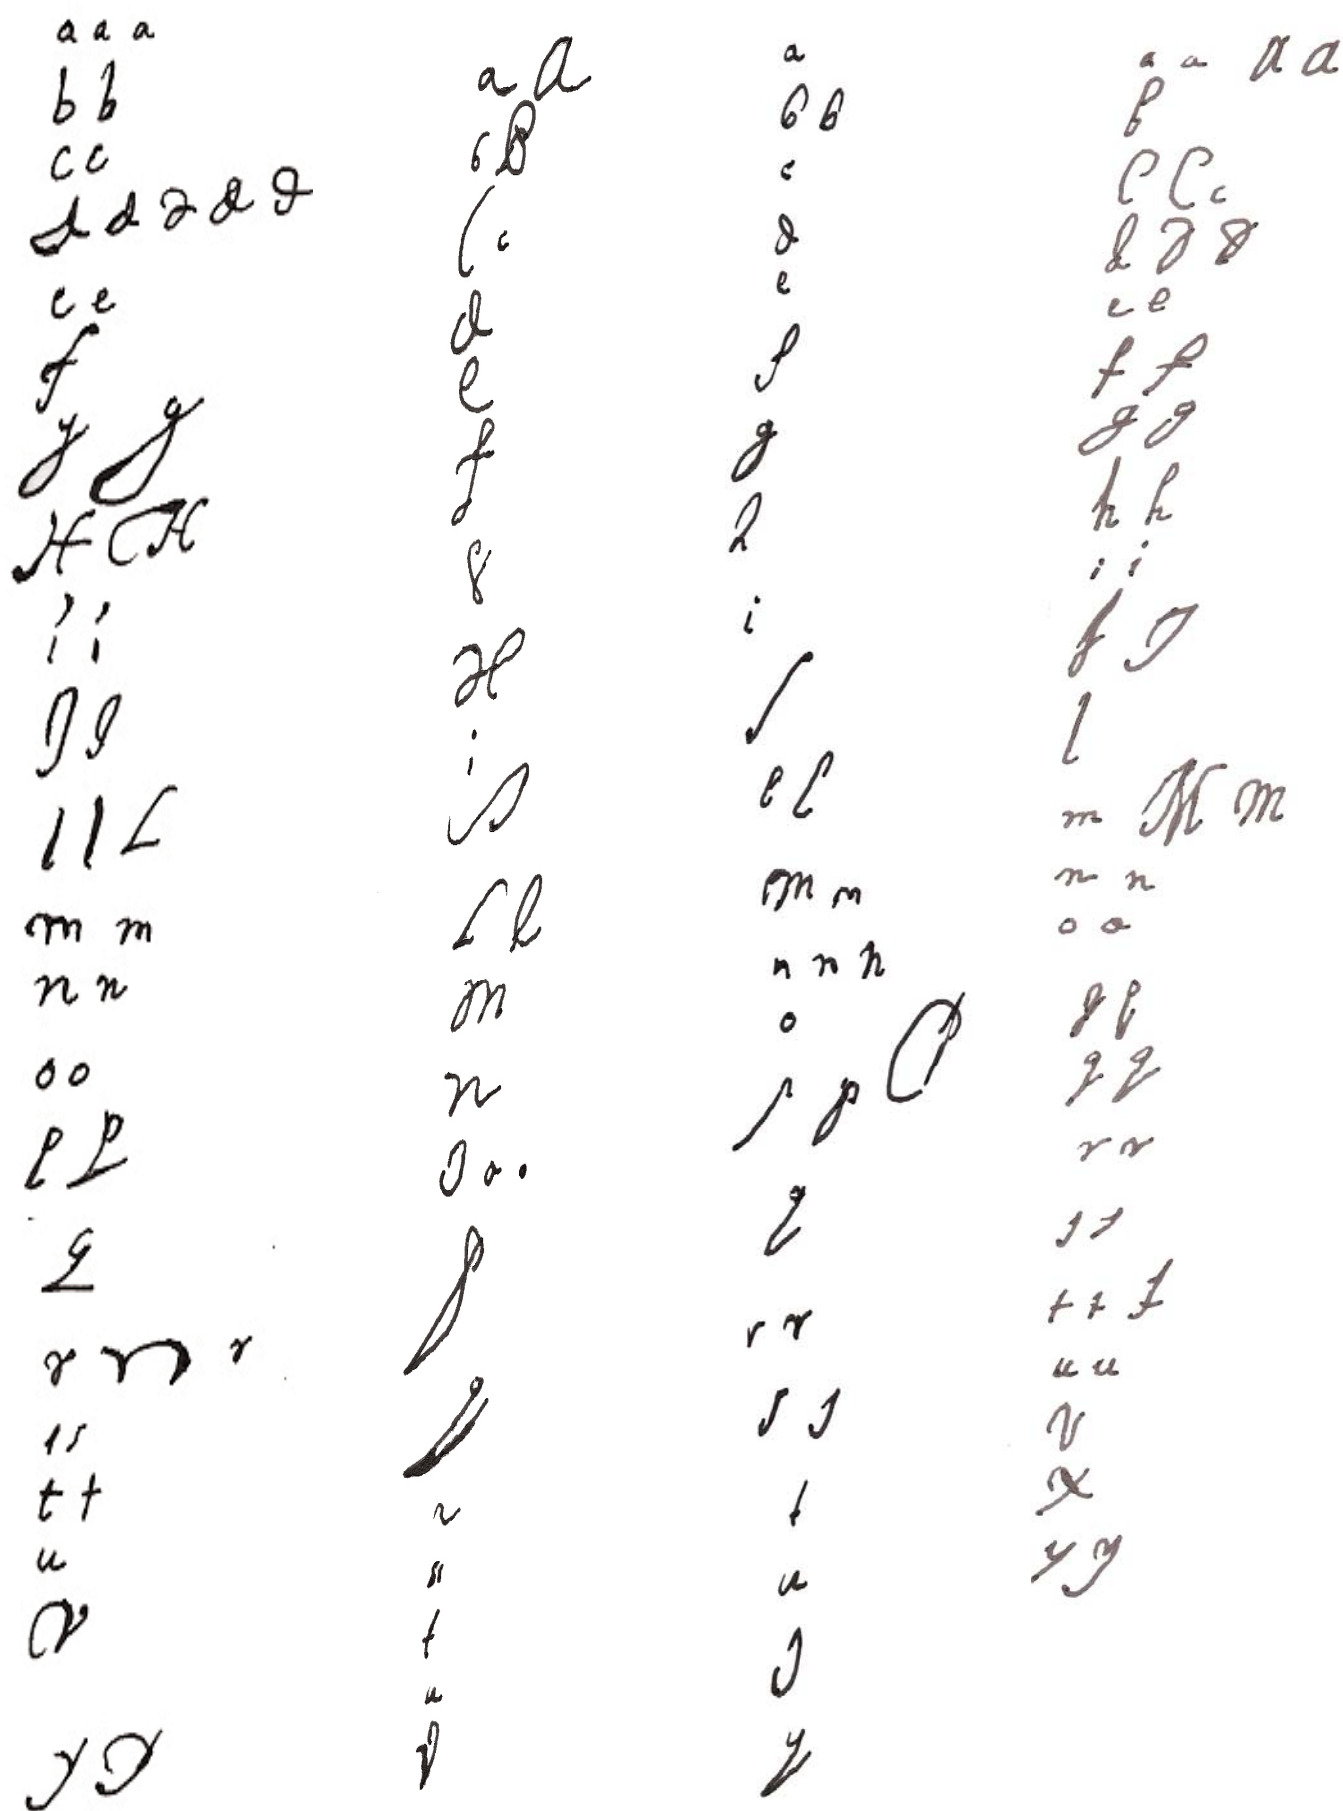 a a a
b b
c c
d d d d d
e e
f
y g
H H
i i
J J
l l L
m m
n n
o o
p P
q
r r r
s s
t t
u
V
y y
a A
b B
C c
d
e
f
g
H
i
L h
m
n
O o .
p
q
r
s
t
u
v
a
b b
c
d
e
f
g
h
i
l l
m m
n n n
o
p p P
q
r r
s s
t
u
y
a a A a
b
C C c
d d d
e e
f f
g g
h h
i i
J J
l
m M m
n n
o o
p p
q q
r r
s s
t t t
u u
v
x
y y